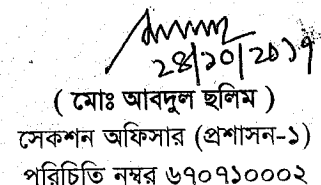 ২৪/১০/২০১৭
( মোঃ আবদুল ছলিম )
সেকশন অফিসার (প্রশাসন-১)
পরিচিতি নম্বর ৬৭০৭১০০০২